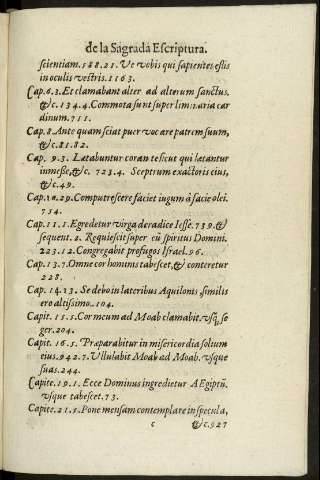 de la Sagrada Escriptura.
scientiam.528.21. Ve vobis qui sapientes estis
in oculis vestris.1163.
Cap.6.3. Et clamabant alter ad alterum sanctus.
&c.134.4. Commota sunt superliminaria car
dinum.711.
Cap.8. Ante quam sciat puer vocare patrem suum,
&c.81.82.
Cap. 9.3. Lætabuntur coram te sicut qui lætantur
in messe, &c. 723.4. Sceptrum exactoris eius,
&c.49.
Cap.10.29. Computrescere faciet iugum à facie olei.
754.
Cap.11.1. Egredetur virga de radice Iesse.739. &
sequent.2. Requiescit super eū spiritus Domini.
223.12. Congregabit profugos Israel.96.
Cap.13.7. Omne cor hominis tabescet, & conteretur
228.
Cap. 14.13. Sedebo in lateribus Aquilonis, similis
ero altissimo.104.
Capit. 15.5. Cor meum ad Moab clamabit. vsq̃, se
ger.204.
Capit. 16.5. Præparabitur in misericordia solium
eius.942.7. Vllulabit Moab ad Moab. vsque
suas.244.
Capite.19.1. Ecce Dominus ingredietur AEgiptū.
vsque tabescet.73.
Capite.21.5. Pone mensam contemplare in specula,
c &c.927